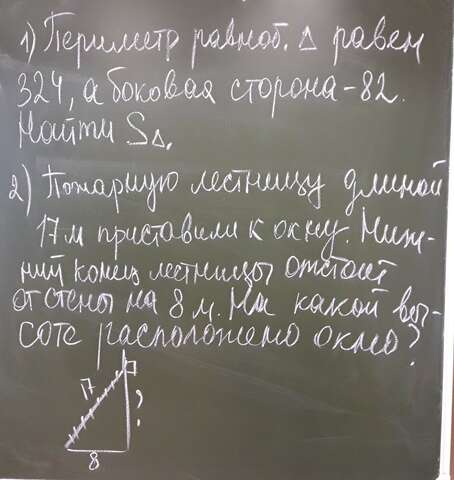 1) Периметр равноб. Δ равен
324, а боковая сторона - 82.
Найти SΔ.
2) Пожарную лестницу длиной
17 м приставили к окну. Ниж-
ний конец лестницы отстоит
от стены на 8 м. На какой вы-
соте расположено окно?
17
?
8